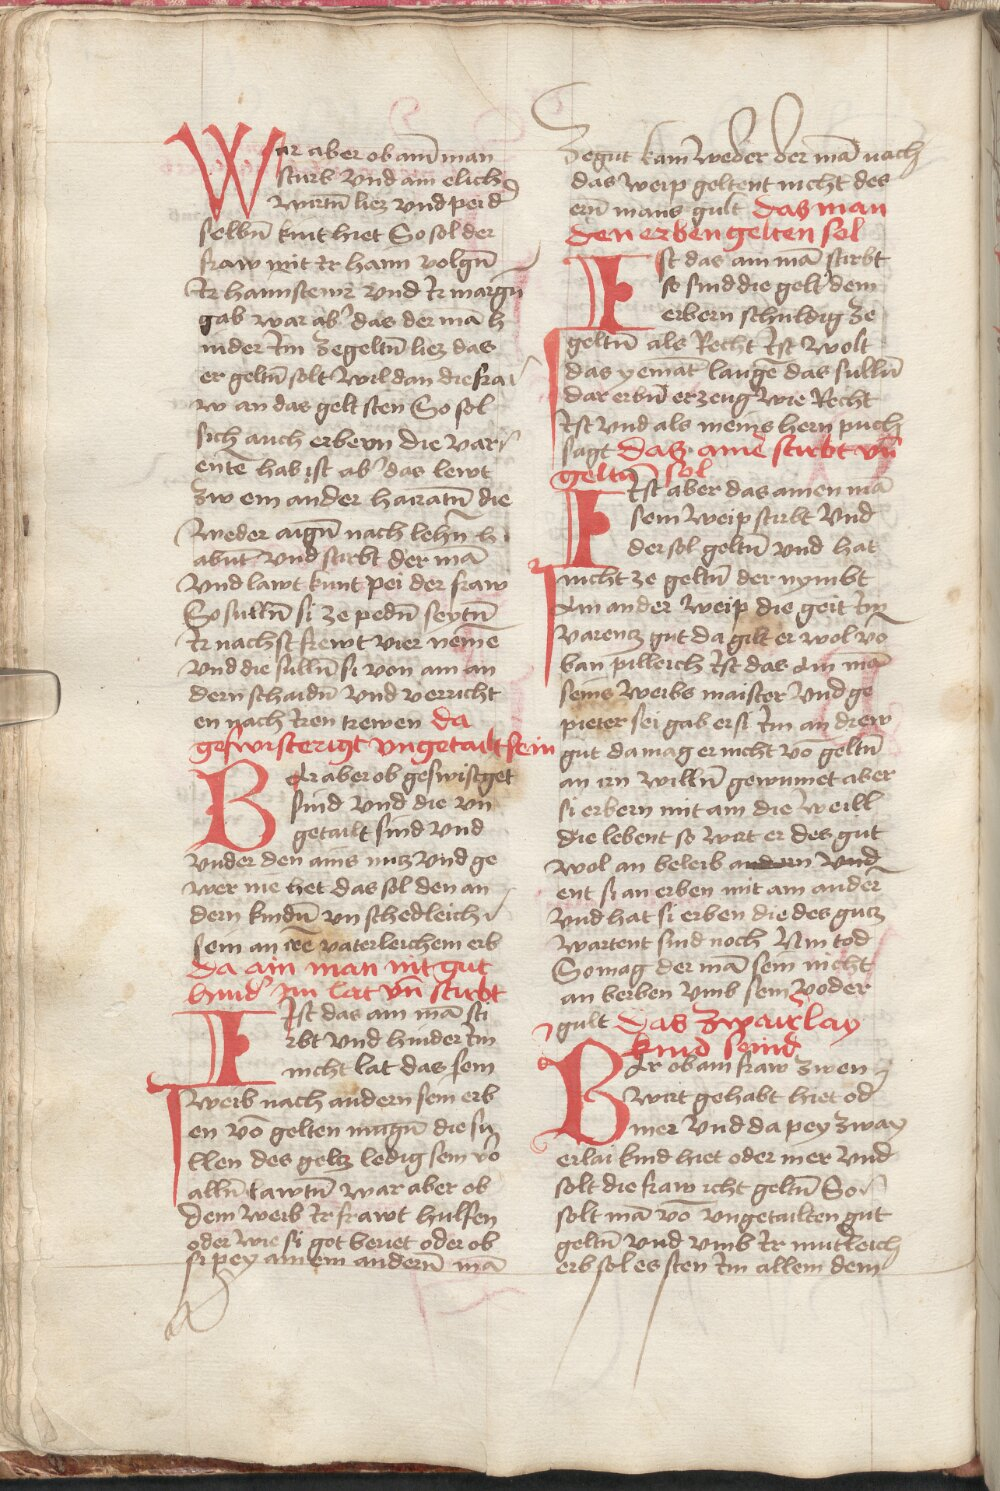 War aber ob ain man
sturb Vnd ain elich
Wirtn̄ liez vnd peid
selbn̄ kint hiet So sol der
fraw mit Ir hann volgn̄
Ir hannstewr Vnd Ir margn̄
gab war ab' das der mā h
inder Im zegeltn̄ liez das
er geltn̄ solt Wil dan die fra
w an das gelt sten So sol
sich auch erbern die vari
ente hab ist ab' das lewt
zw ein ander hairatn̄ die
Weder aign̄ nach lehn̄ h
abnt Vnd stirbt der mā
Vnd lawt kint pei der fraw
So sulln̄ si ze pedn̄ seytn̄
Ir nachst frewt vier nemē
Vnd die sulln̄ si von ain an
dern schaidn̄ Vnd verricht
en nach Iren trewen da
geswisterigt vngetailt sein
War aber ob geswistget
sind Vnd die vn
getailt sind Vnd
Vnder den ains nutz Vnd ge
wer nie het das sol den an
dern kindn̄ vn schedleich
sein an irē vaterleichem erb
da ain man nit gut
hind' im lat vn̄ stirbt
Ist das ain mā sti
rbt Vnd hinder Im
nicht lat das sein
Weib nach andern sein erb
en vō gelten mugn̄ die su
llen des geltz ledig sein vō
alln̄ tawtn̄ war aber ob
dem Weib Ir frawt hulfen
oder wie si got beriet oder ob
si pey ainem andern̄ mā
zegut kam Weder der mā nach
das Weip geltent nicht des
ern̄ mans gult das man
den erben gelten sol
Ist das ain mā stirbt
so sind die gelt dem
erbern schuldig ze
geltn̄ als Recht Ist Wolt
das yemāt laugē das sulln̄
dar erbn̄ erzeug Wie Recht
Ist Vnd als meins hern puch
sagt das ainē stirbt vn̄
geltn̄ sol
Ist aber das ainen mā
sein Weip stirbt Vnd
der sol geltn̄ Vnd hat
nicht ze geltn̄ der nymbt
Ain ander Weip die geit Im
varentz gut da gilt er wol vō
van pilleich Ist das Ain mā
seins Weibs maister Vnd ge
pieter sei gab er si Im an drew
gut da mag er nicht vō geltn̄
an irn Willn̄ gewinnet aber
si erbern mit ain die Weill
die lebent so wirt er des gut
wol an beleib Vnd
ent si an erben mit ain ander
Vnd hat si erben die des gutz
Wartent sind noch Irm tod
So mag der mā sein nicht
an werben Vmb sein voder
gult das zwairlay
kind seind
War ob ain fraw zwen
Wirt gehabt hiet od
mer Vnd da pey zway
erlai kind hiet oder mer Vnd
solt die fraw icht geltn̄ So
solt mā vō vngetailten gut
geltn̄ Vnd Vmb Ir mutleich
erb sol es sten Im allem dem